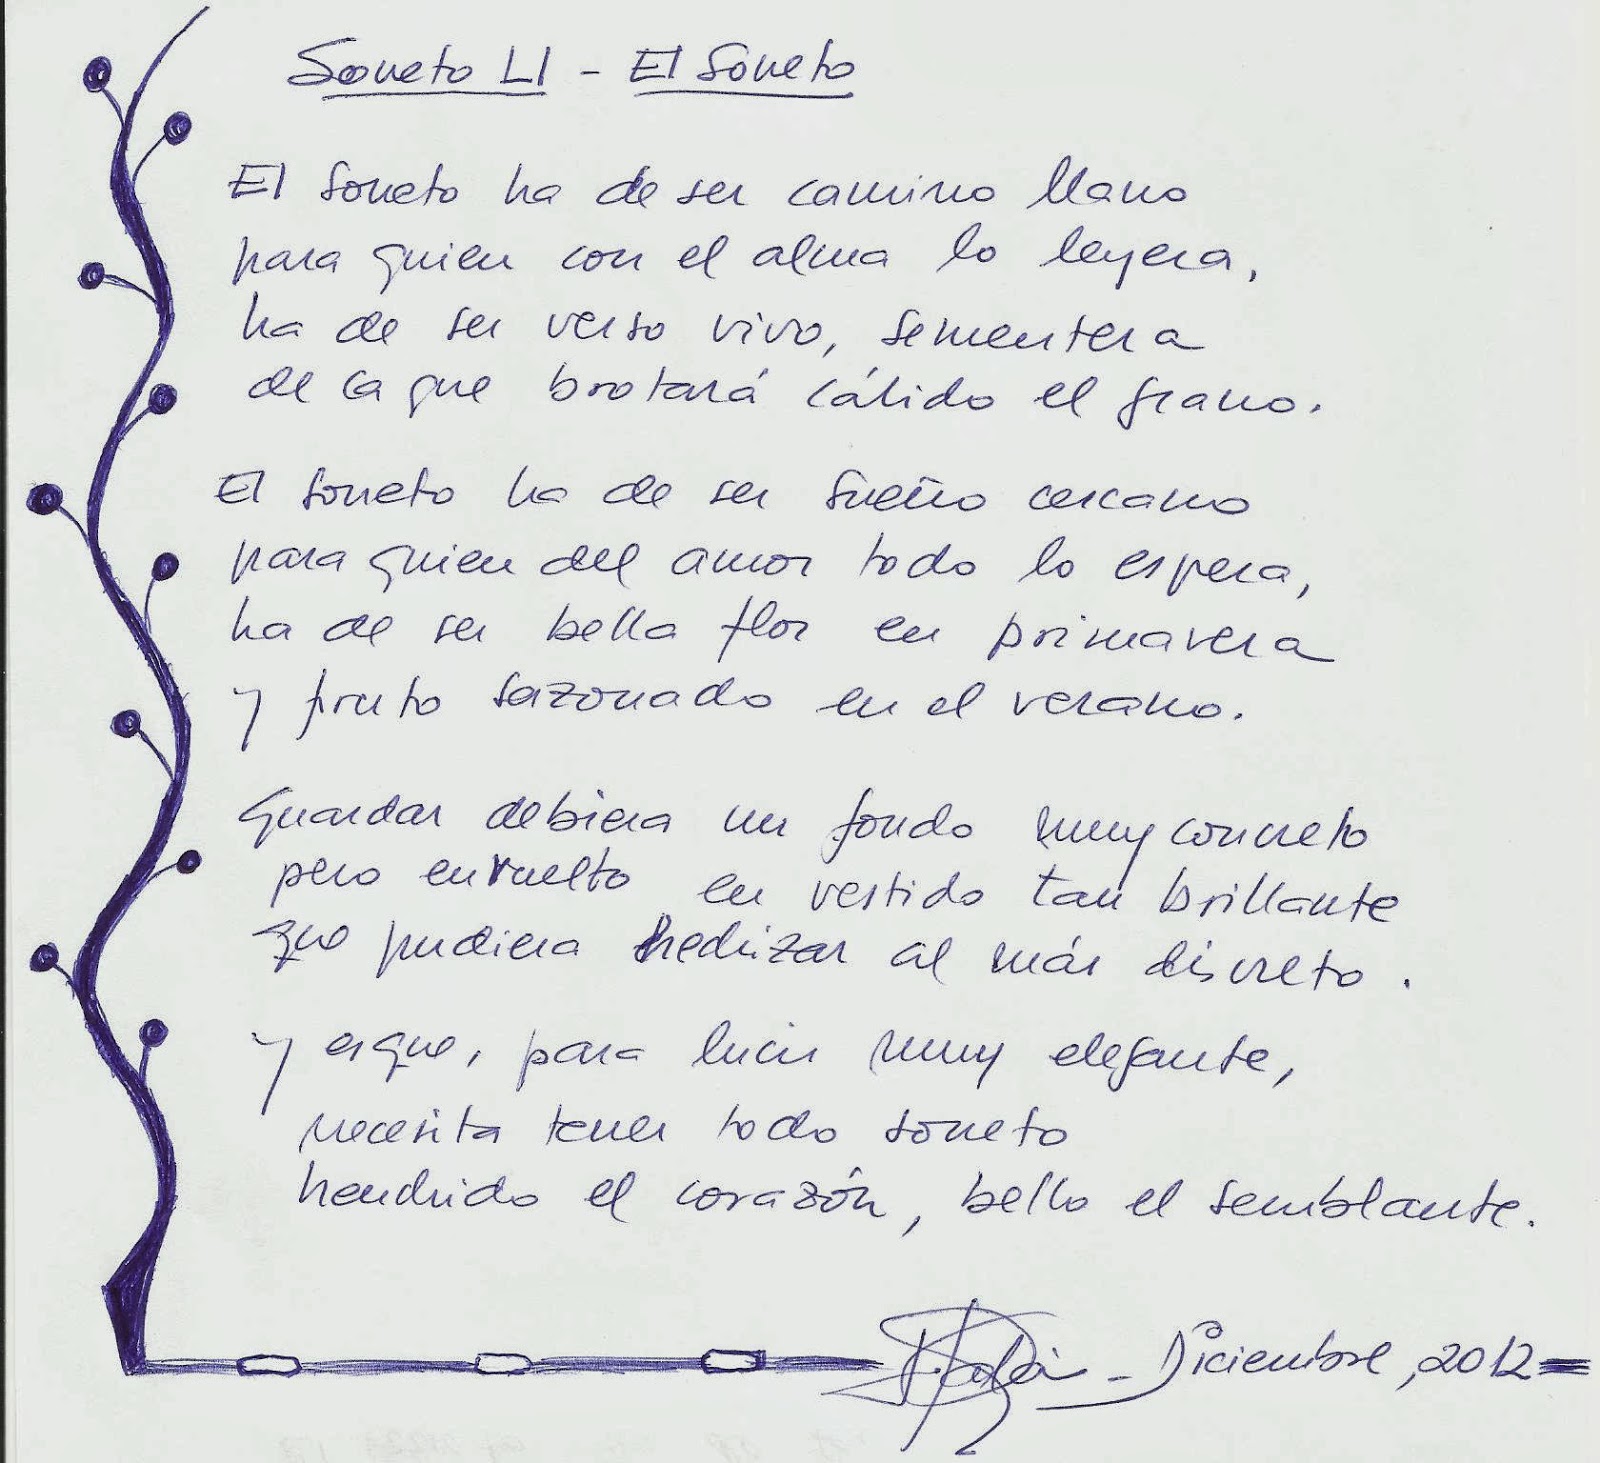 Soneto LI - El Soneto
El soneto ha de ser camino llano
para quien con el alma lo leyera,
ha de ser verso vivo, sementera
de la que brotará cálido el grano.
El soneto ha de ser sueño cercano
para quien del amor todo lo espera,
ha de ser bella flor en primavera
y fruto sazonado en el verano.
Guardar debiera un fondo muy concreto
pero envuelto en vestido tan brillante
que pudiera hechizar al más discreto.
Y es que, para lucir muy elegante,
necesita tener todo soneto
henchido el corazón, bello el semblante.
- Diciembre, 2012